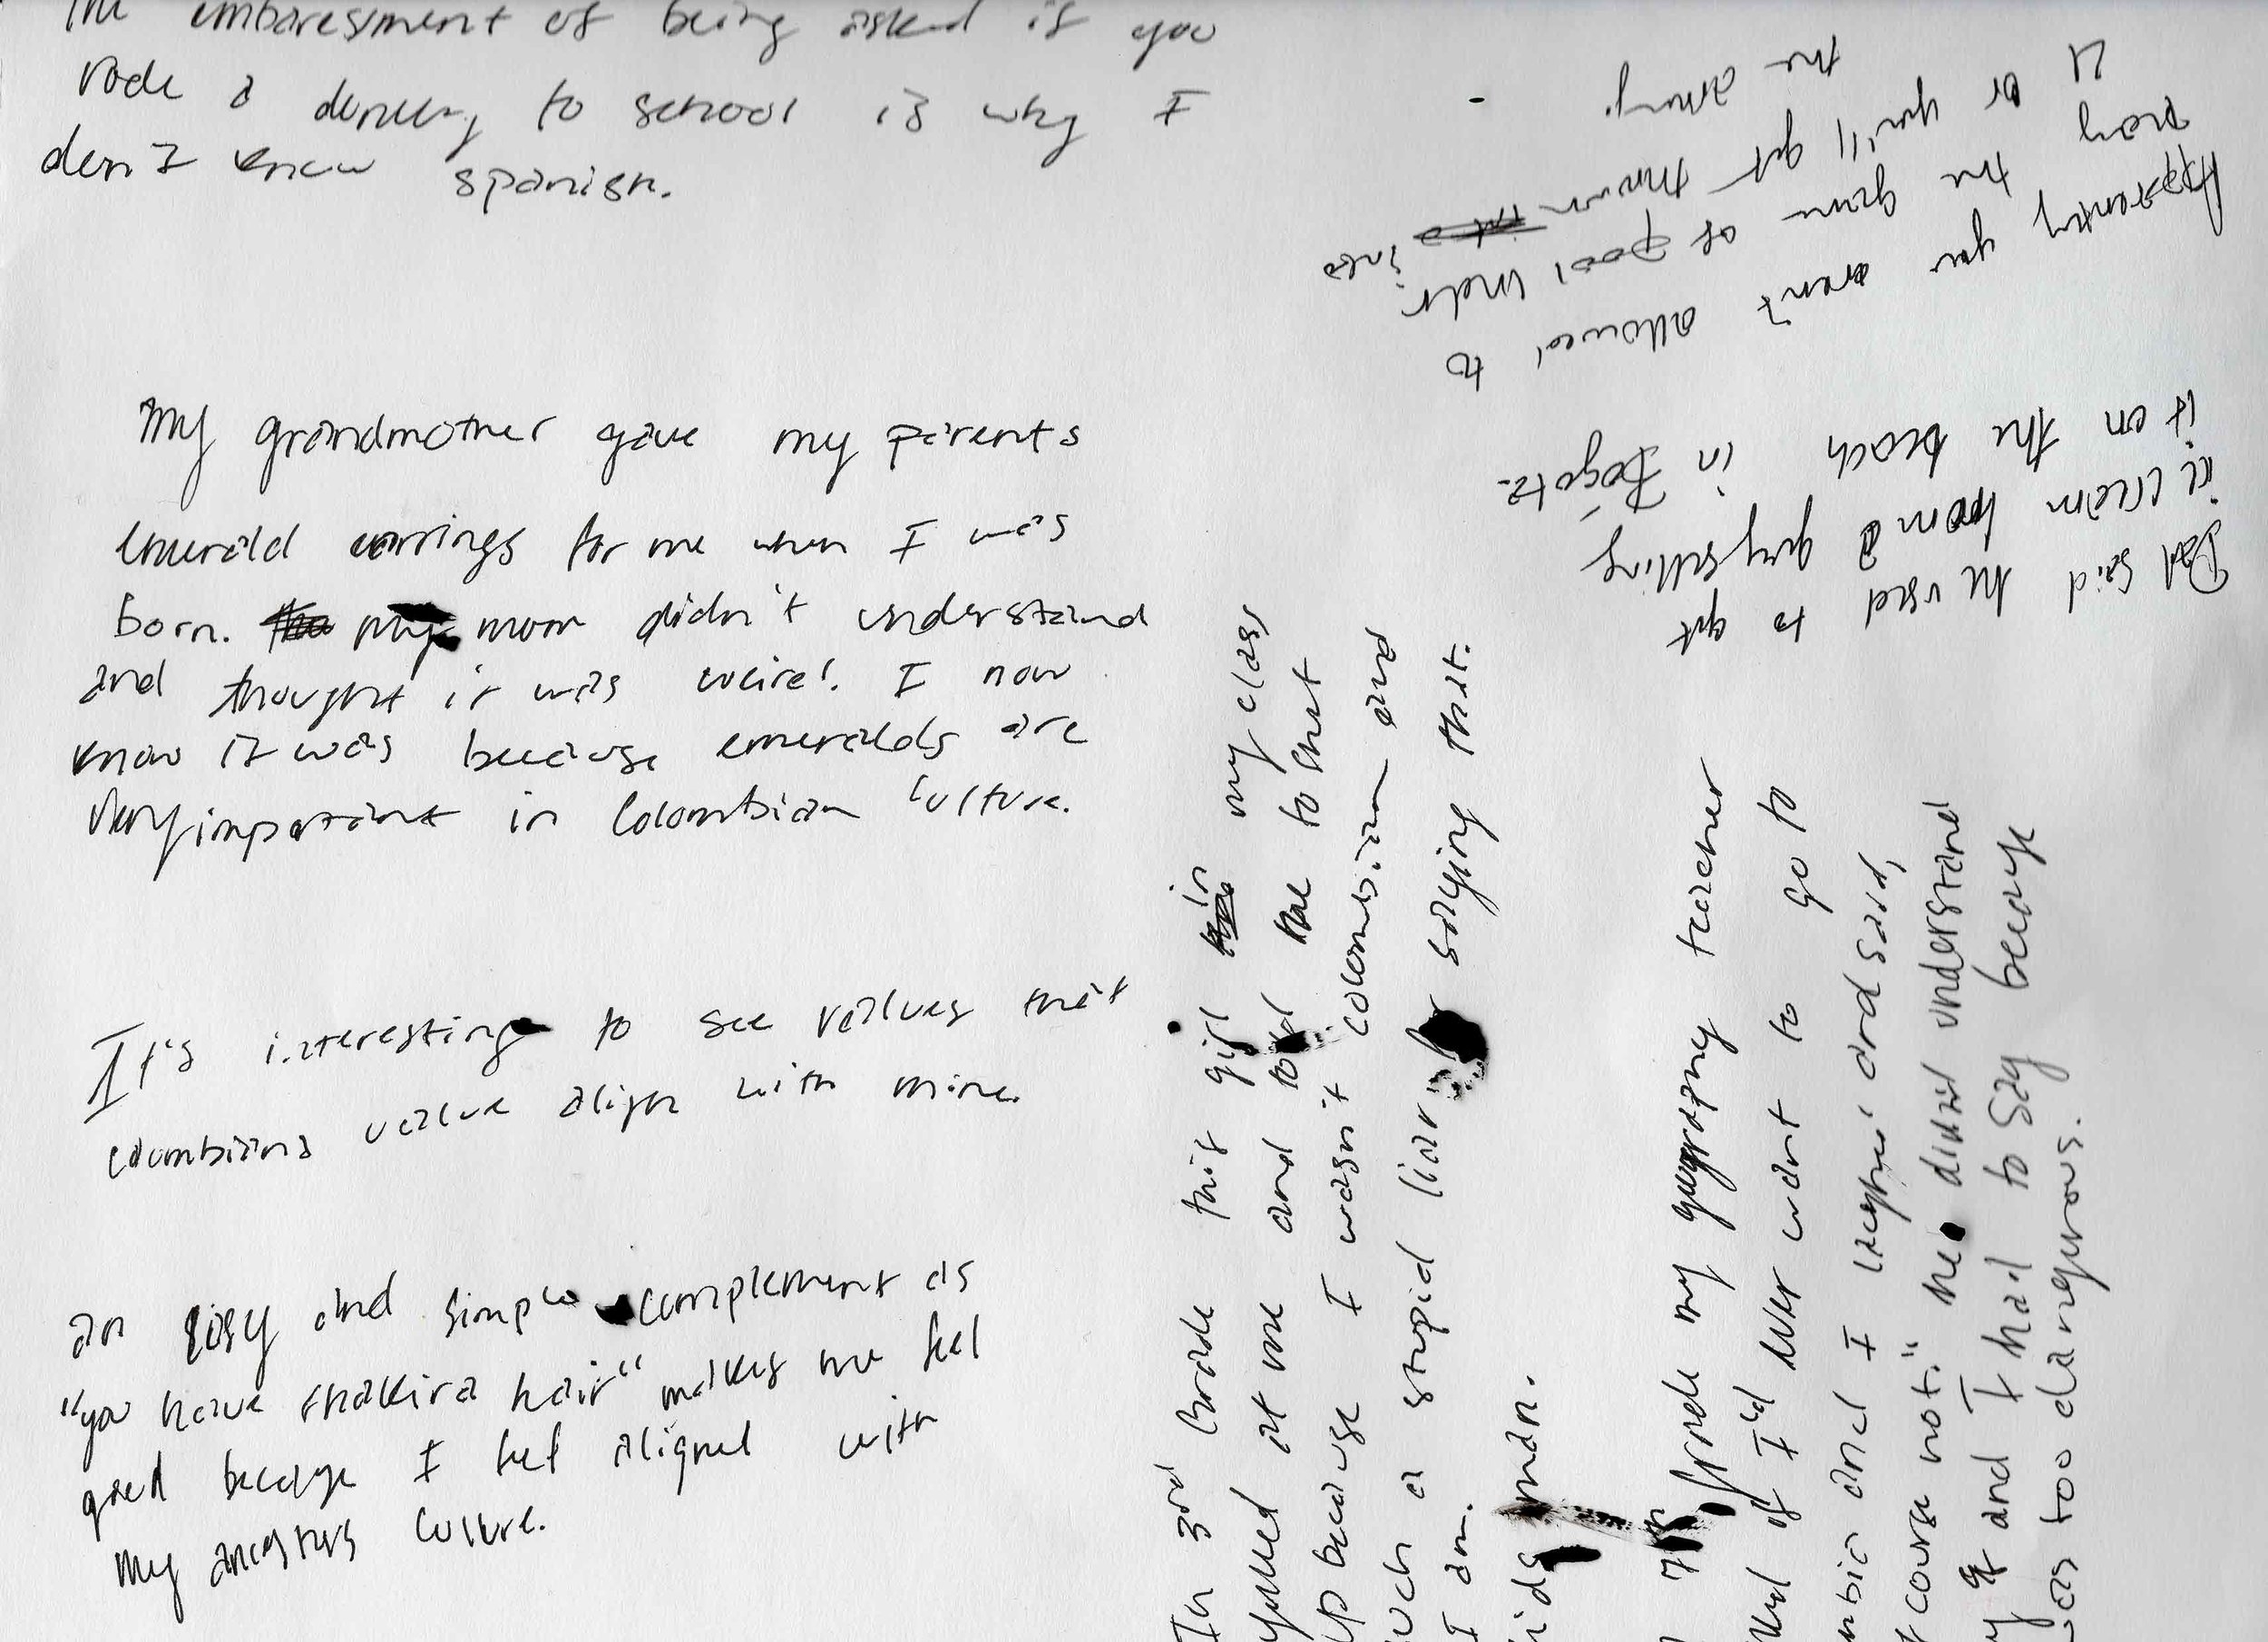 The embaresment of being asked if you
rode a donkey to school is why I
don't know spanish.
My grandmother gave my parents
emerald earrings for me when I was
born. my mom didn't understand
and thought it was weird. I now
know it was because emeralds are
very important in Colombian culture.
It's interesting to see values that
colombians value align with mine.
an easy and simple complement as
"you have shakira hair" makes me feel
good because I feel aligned with
my ancestors culture.
Apparently you aren't allowed to
play the game of pool under
17 or you'll get thrown into
the army.
Dad said he used to get
ice cream from a guy selling
it on the beach in Bogota.
In 3rd Grade this girl in my class
yelled at me and told me to shut
up because I wasn't colombian and
such a stupid liar saying that.
I am.
kids man.
7th grade my geography teacher
asked if I'd ever want to go to
mbia and I laughed and said,
of course not." he didn't understand
y and I had to say because
was too dangerous.